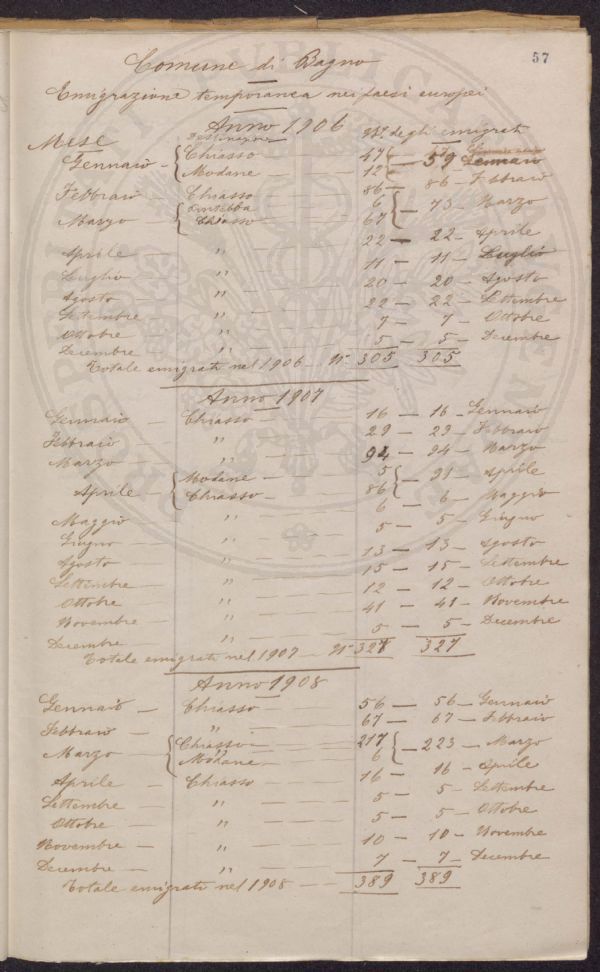 57
Comune di Bagno
Emigrazione temporanea nei paesi europei
Anno 1906
Mese Destinazione N° degli emigrati
Gennaio - Chiasso 47 — 59 Gennaio
Modane — 12
Febbraio — Chiasso 86 — 86 — Febbraio
Marzo Pontebba 6 — 73 — Marzo
Chiasso 67
Aprile — " — 22 — 22 — Aprile
Luglio — " — 11 — 11 — Luglio
Agosto — " — 20 — 20 — Agosto
Settembre — " — 22 — 22 — Settembre
Ottobre — " — 7 — 7 — Ottobre
Decembre — " — 5 — 5 — Decembre
Totale emigrati nel 1906 N° 305 305
Anno 1907
Gennaio — Chiasso — 16 — 16 — Gennaio
Febbraio — " — 29 — 29 — Febbraio
Marzo — " — 94 — 94 — Marzo
Aprile — Modane — 5 — 91 — Aprile
Chiasso — 86
Maggio — " — 6 — 6 — Maggio
Giugno — " — 5 — 5 — Giugno
Agosto — " — 13 — 13 — Agosto
Settembre — " — 15 — 15 — Settembre
Ottobre — " — 12 — 12 — Ottobre
Novembre — " — 41 — 41 — Novembre
Decembre — " — 5 — 5 — Decembre
Totale emigrati nel 1907 — N° 327 327
Anno 1908
Gennaio — Chiasso — 56 — 56 — Gennaio
Febbraio — " — 67 — 67 — Febbraio
Marzo — Chiasso — 217 — 223 — Marzo
Modane — 6
Aprile — Chiasso — 16 — 16 — Aprile
Settembre — " — 5 — 5 — Settembre
Ottobre — " — 5 — 5 — Ottobre
Novembre — " — 10 — 10 — Novembre
Decembre — " — 7 — 7 — Decembre
Totale emigrati nel 1908 — 389 389